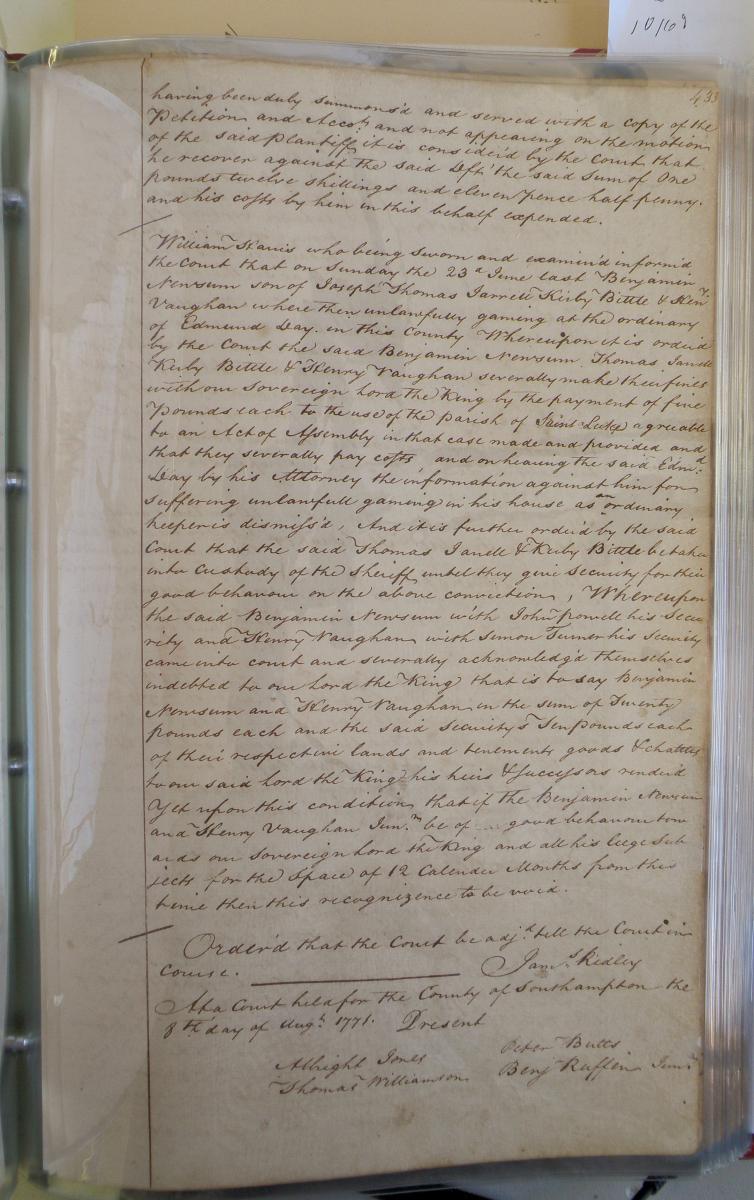 10/109
433
having been duly summons'd and served with a copy of the
Petition and Accot. and not appearing on the motion
of the said plantiff it is consider'd by the Court that
he recover against the said Dft. the said Sum of One
pounds twelve shillings and eleven pence half penny.
and his costs by him in this behalf expended.
William Haris who being sworn and examin'd inform'd
the Court that on Sunday the 23d June last Benjamin
Newsum son of Joseph Thomas Jarrell Kirby Bittle & Heny.
Vaughan where then unlawfully gaming at the ordinary
of Edmund Day. in this County Whereupon it is order'd
by the Court the said Benjamin Newsum Thomas Jarrell
Kirby Bittle & Henry Vaughan severally make their fines
with our Sovereign Lord the King by the payment of five
Pounds each to the use of the parish of Saint Luke agreable
to an Act of Assembly in that case made and provided and
that they severally pay costs and on hearing the said Edmd.
Day by his Attorney the information against him for
suffering unlawfull gaming in his house as an ordinary
keeper is dismiss'd, And it is further order'd by the said
Court that the said Thomas Jarrell & Kirby Bittle be taken
into Custody of the Sheriff until they give Security for their
good behaviour on the above conviction, Whereupon
the said Benjamin Newsum with John powell his Secu
rity and Henry Vaughan with Simon Turner his Security
came into court and severally acknowledg'd themselves
indebted to our lord the King that is to say Benjamin
Newsum and Henry Vaughan in the sum of Twenty
pounds each and the said Securitys Ten pounds each
of their respective lands and tenements goods & chattles
to our said lord the King his heirs & Successors render'd
Yet upon this condition that if the Benjamin Newsum
and Henry Vaughan Junr. be of good behaviour tow
ards our Sovereign Lord the King and all his liege Sub
jects for the Space of 12 Calender Months from this
time then this recognizence to be void.
Order'd that the Court be adjd. till the Court in
course. Jams. Ridley
At a Court held for the County of Southampton the
8th day of Augt. 1771. Present
Albright Jones Peter Butts
Thomas Williamson Benj Ruffin Junr